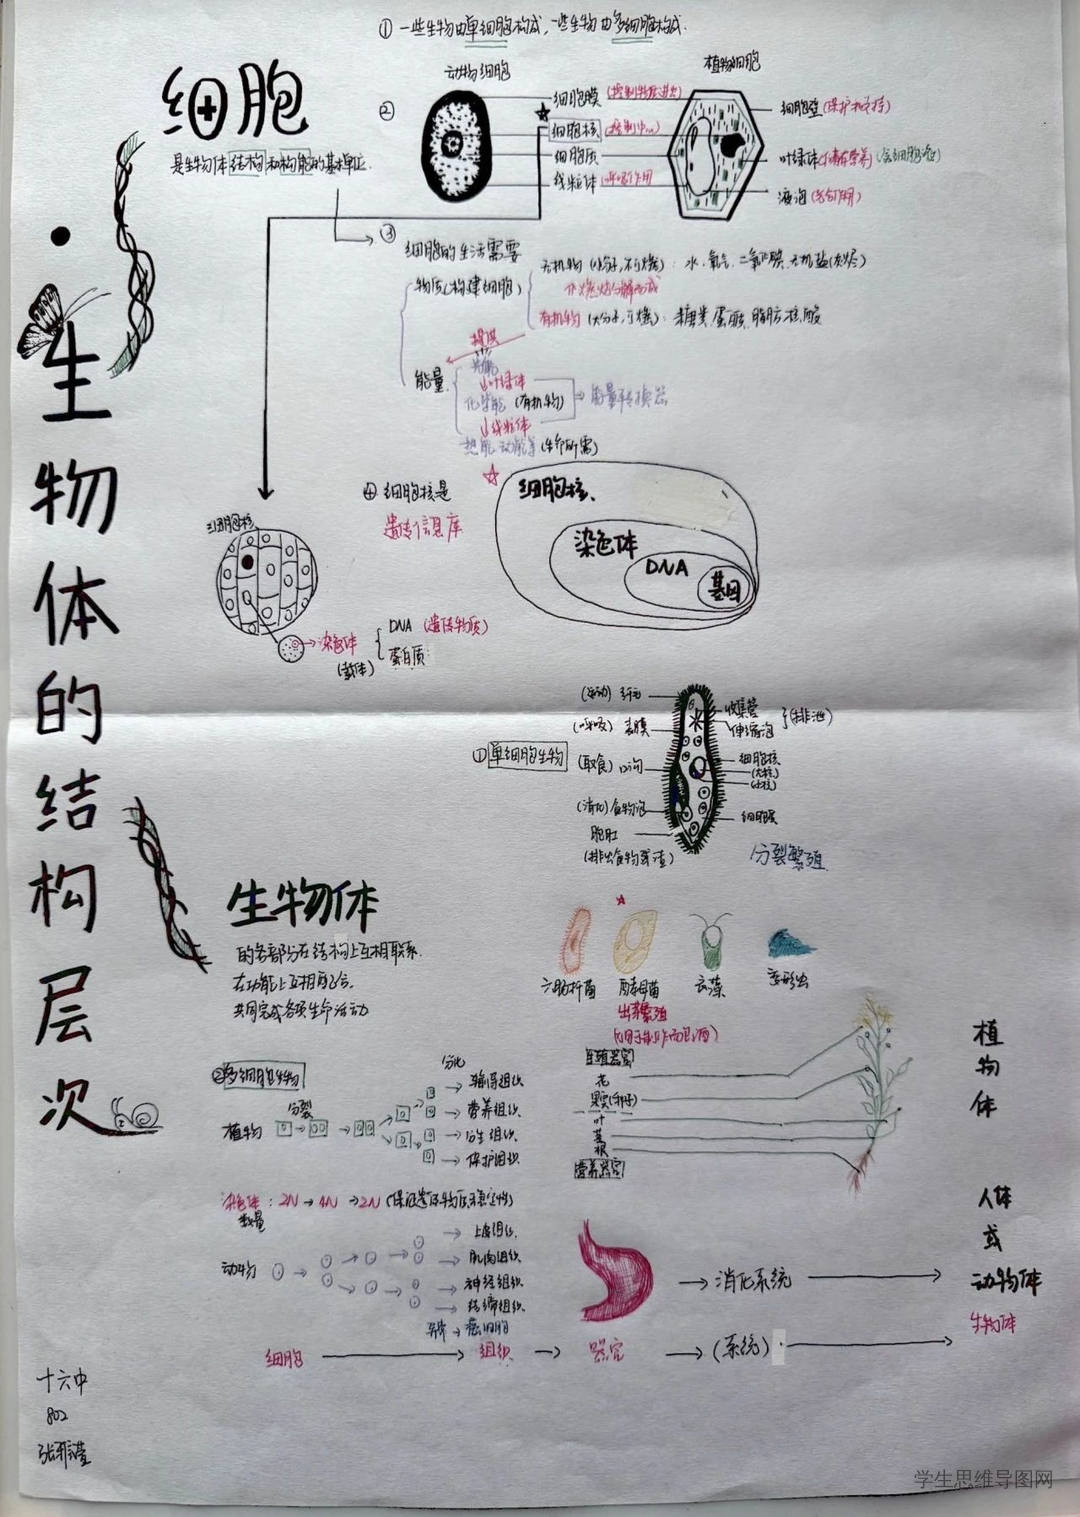 ① 一些生物由单细胞构成,一些生物由多细胞构成.
细胞
是生物体结构和构能的基本单位.
②
动物细胞
植物细胞
细胞膜(控制物质进出)
细胞核(控制中心)
细胞质
线粒体(呼吸作用
细胞壁(保护和支持)
叶绿体
液泡
③
细胞的生活需要
物质(构建细胞)
无机物(小分子,不可燃):水、氧气、二氧化碳、无机盐(灰烬)
有机物(大分子,可燃):糖类、蛋白质、脂肪、核酸
提供
能量
光能
↓叶绿体
化学能(有机物)
能量转换器
↓线粒体
热能、动能等(生命所需)
④ 细胞核是
遗传信息库
细胞核、
染色体
DNA
基因
细胞核
染色体
(载体)
DNA (遗传物质)
蛋白质
生物体的结构层次
①单细胞生物
(运动) 纤毛
(呼吸) 表膜
(取食) 口沟
(消化) 食物泡
胞肛
(排出食物残渣)
收集管
伸缩泡
(排泄)
细胞核
(大核)
(小核)
细胞膜
分裂繁殖
生物体
的各部分在结构上互相联系.
在功能上互相配合.
共同完成各项生命活动
大肠杆菌
酵母菌
衣藻
变形虫
出芽繁殖
②多细胞生物
植物
分裂
分化
输导组织
营养组织.
分生组织.
保护组织
生殖器官
花
果实(种子)
叶
茎
根
营养器官
植物体
染色体
数量
: 2N → 4N → 2N (保证遗传物质稳定性)
动物
上皮组织.
肌肉组织.
神经组织.
结缔组织.
异常→癌细胞
→消化系统
人体
或
动物体
生物体
细胞
组织
器官
(系统)
十六中
802
学生思维导图网